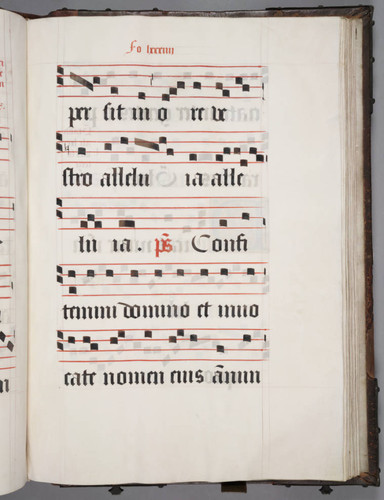 Fo lxxxiiii
per sit in o re ve
stro allelu ia alle
lu ia. ps Confi
temini domino et invo
cate nomen eius ānun